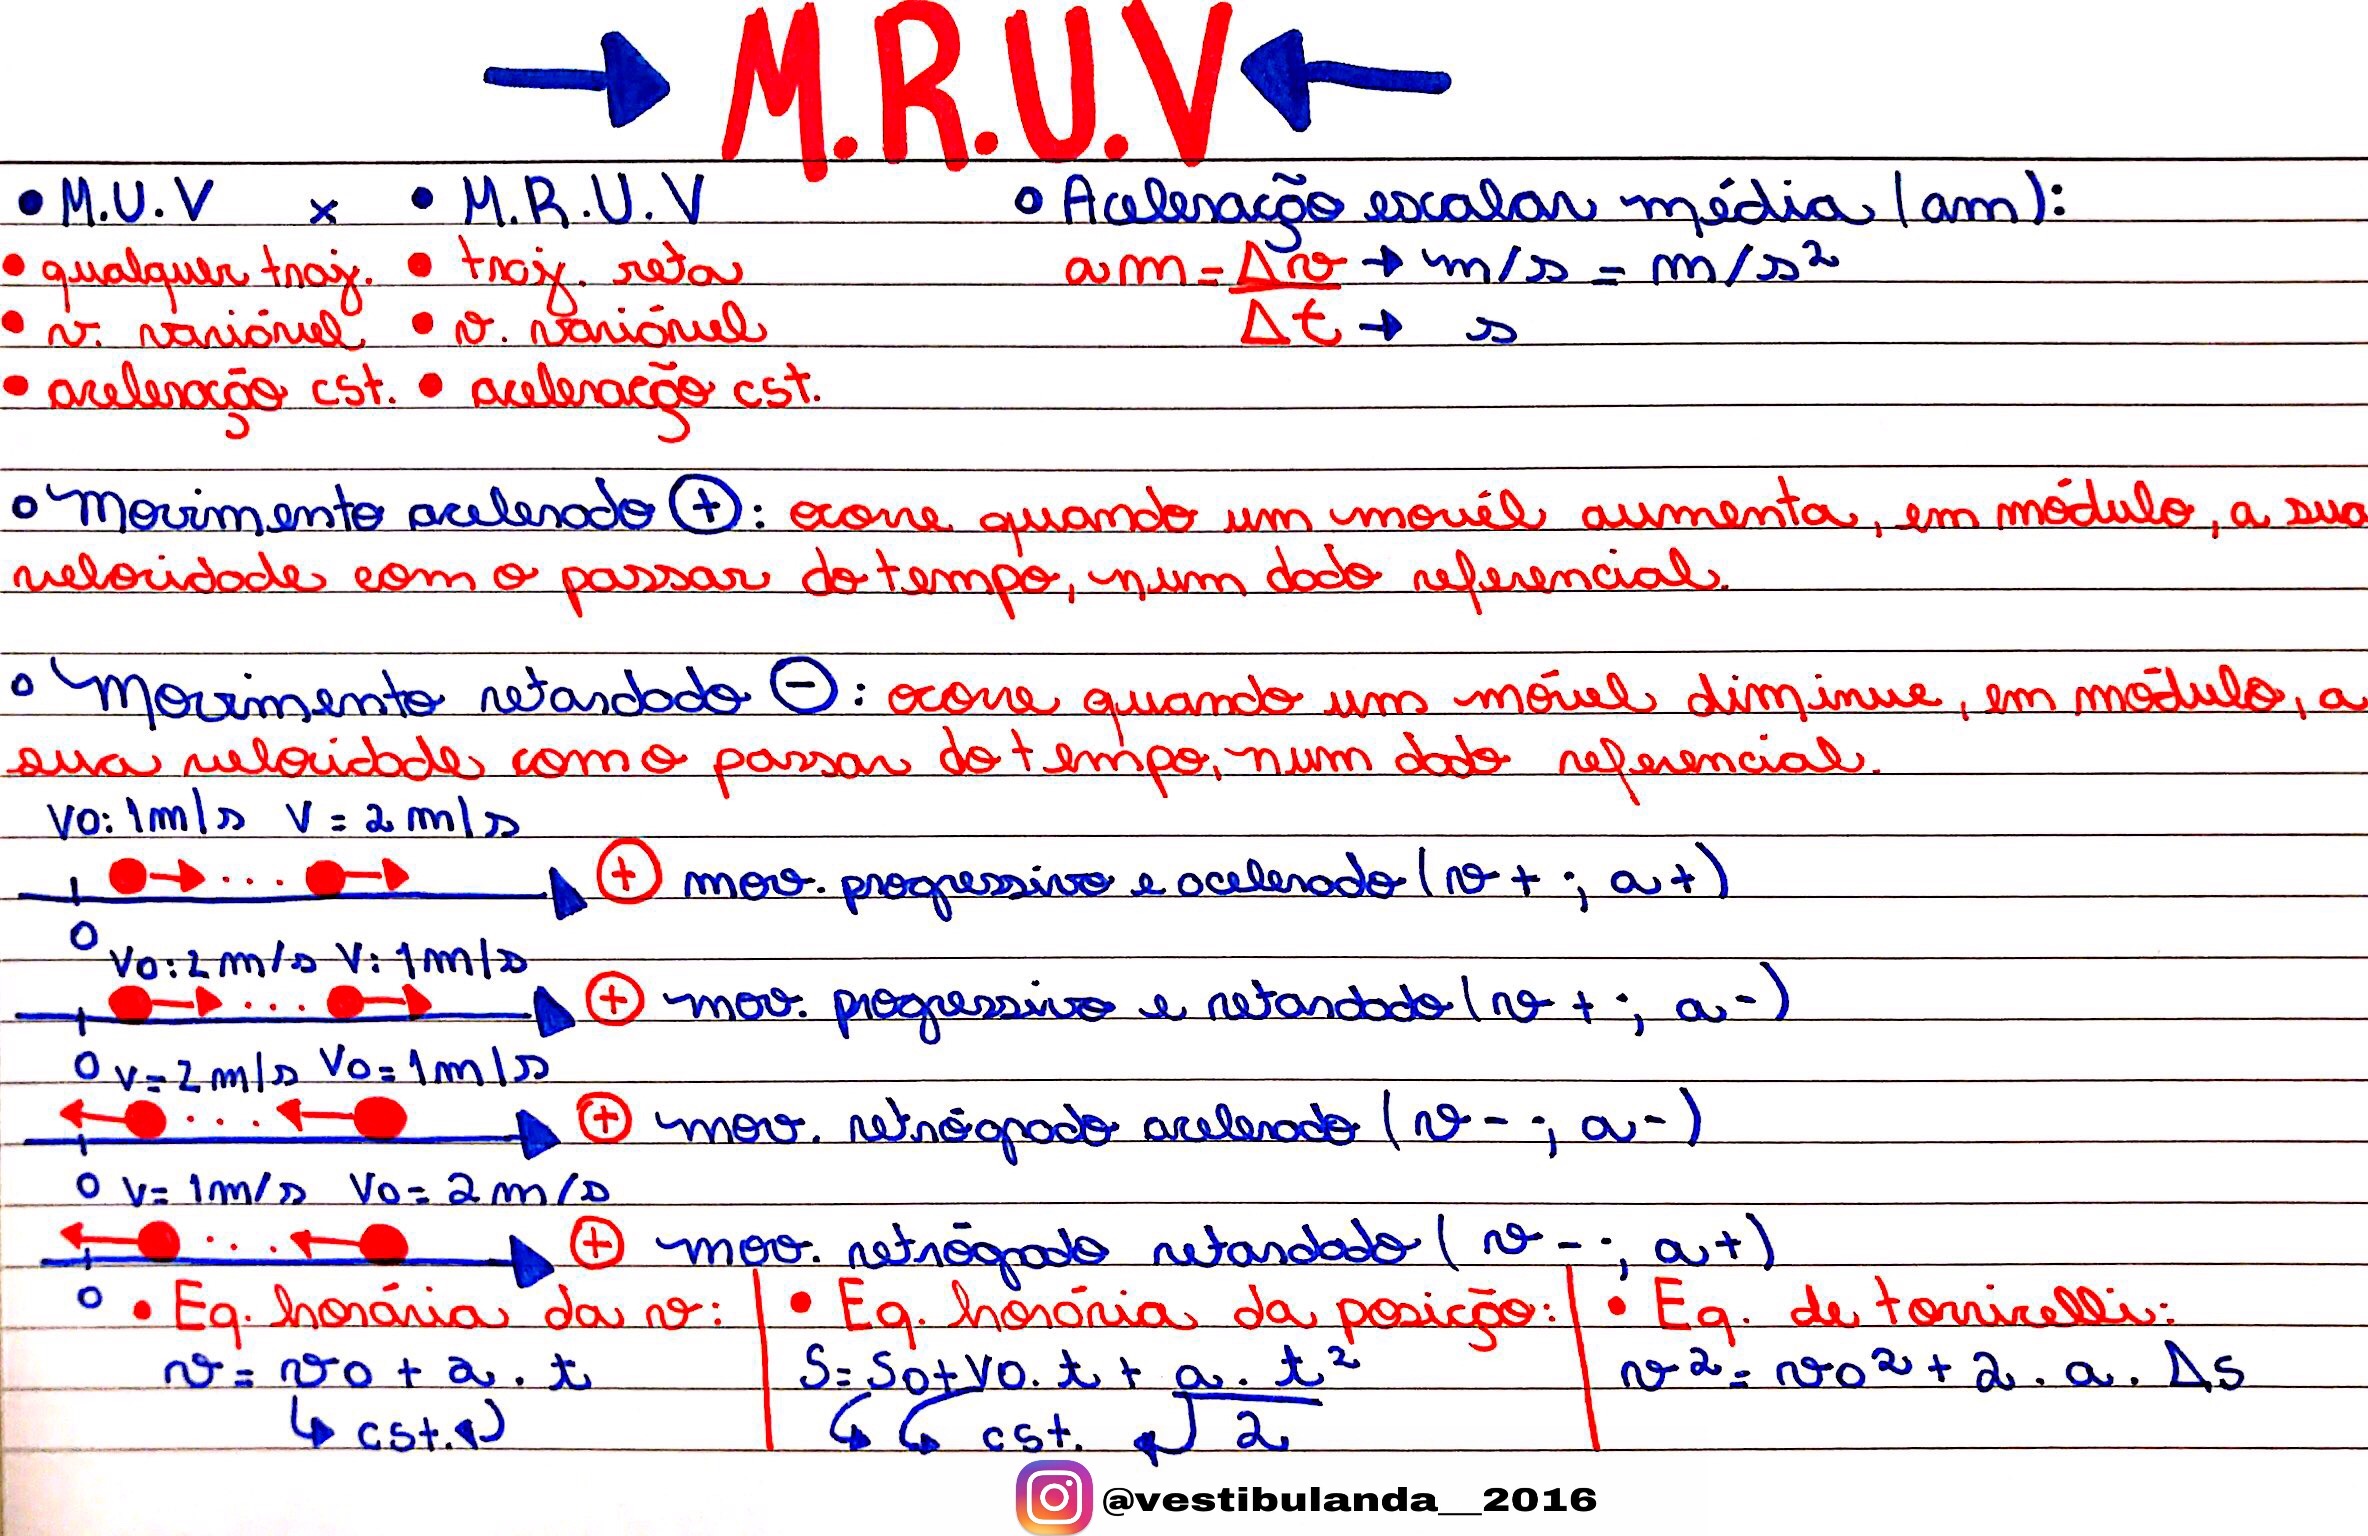 M.R.U.V
• M.U.V x • M.R.U.V
• qualquer traj. • traj. reta
• v. variável • v. variável
• aceleração cst. • aceleração cst.
Aceleração escalar média (am):
am = Δv → m/s = m/s²
Δt → s
Movimento acelerado (+): ocorre quando um movél aumenta, em módulo, a sua
velocidade com o passar do tempo, num dado referencial.
Movimento retardado (-): ocorre quando um móvel diminue, em módulo, a
sua velocidade com o passar do tempo, num dado referencial.
V0: 1m/s V = 2m/s
(+) mov. progressivo e acelerado (v+; a+)
0
V0: 2m/s V: 1m/s
(+) mov. progressivo e retardado (v+; a-)
0
V=2m/s V0=1m/s
(+) mov. retrógrado acelerado (v-; a-)
0
V=1m/s V0=2m/s
(+) mov. retrógrado retardado (v-; a+)
0
• Eq. horária da v:
v = v0 + a.t
cst.
• Eq. horária da posição:
S=S0+V0.t + a.t²
cst. 2
• Eq. de torricelli:
v² = v0² + 2.a.Δs
@vestibulanda__2016